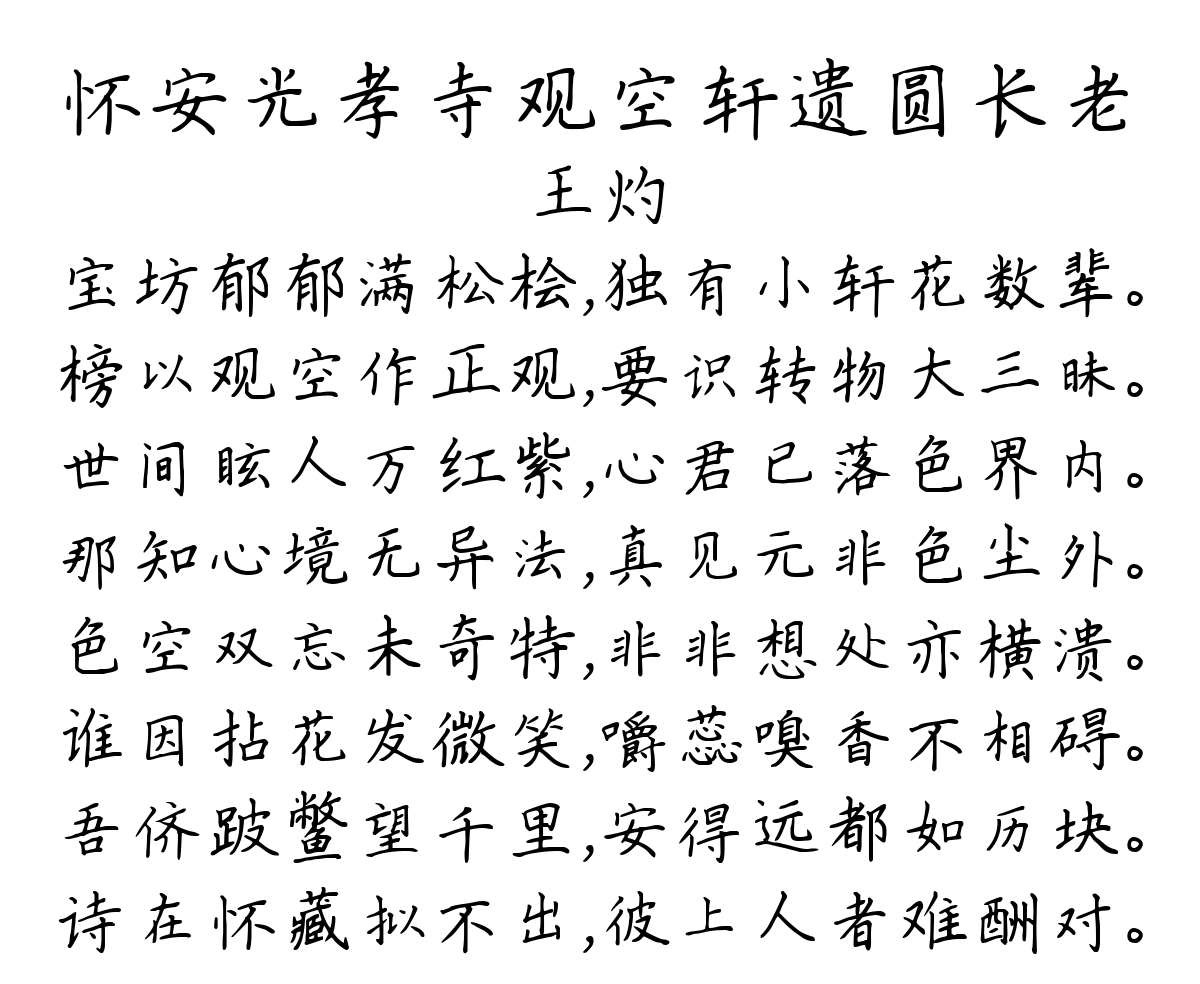 怀安光孝寺观空轩遗圆长老
王灼
宝坊郁郁满松桧,独有小轩花数辈。
榜以观空作正观,要识转物大三昧。
世间眩人万红紫,心君已落色界内。
那知心境无异法,真见元非色尘外。
色空双忘未奇特,非非想处亦横溃。
谁因拈花发微笑,嚼蕊嗅香不相碍。
吾侪跛鳖望千里,安得远都如历块。
诗在怀藏拟不出,彼上人者难酬对。